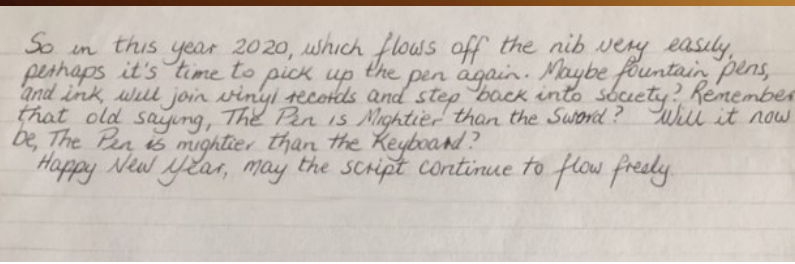 So in this year 2020, which flows off the nib very easily,
perhaps it's time to pick up the pen again. Maybe fountain pens,
and ink, will join vinyl records and step back into society? Remember
that old saying, The Pen is Mightier than the Sword? Will it now
be, The Pen is mightier than the Keyboard?
Happy New Year, may the script continue to flow freely.